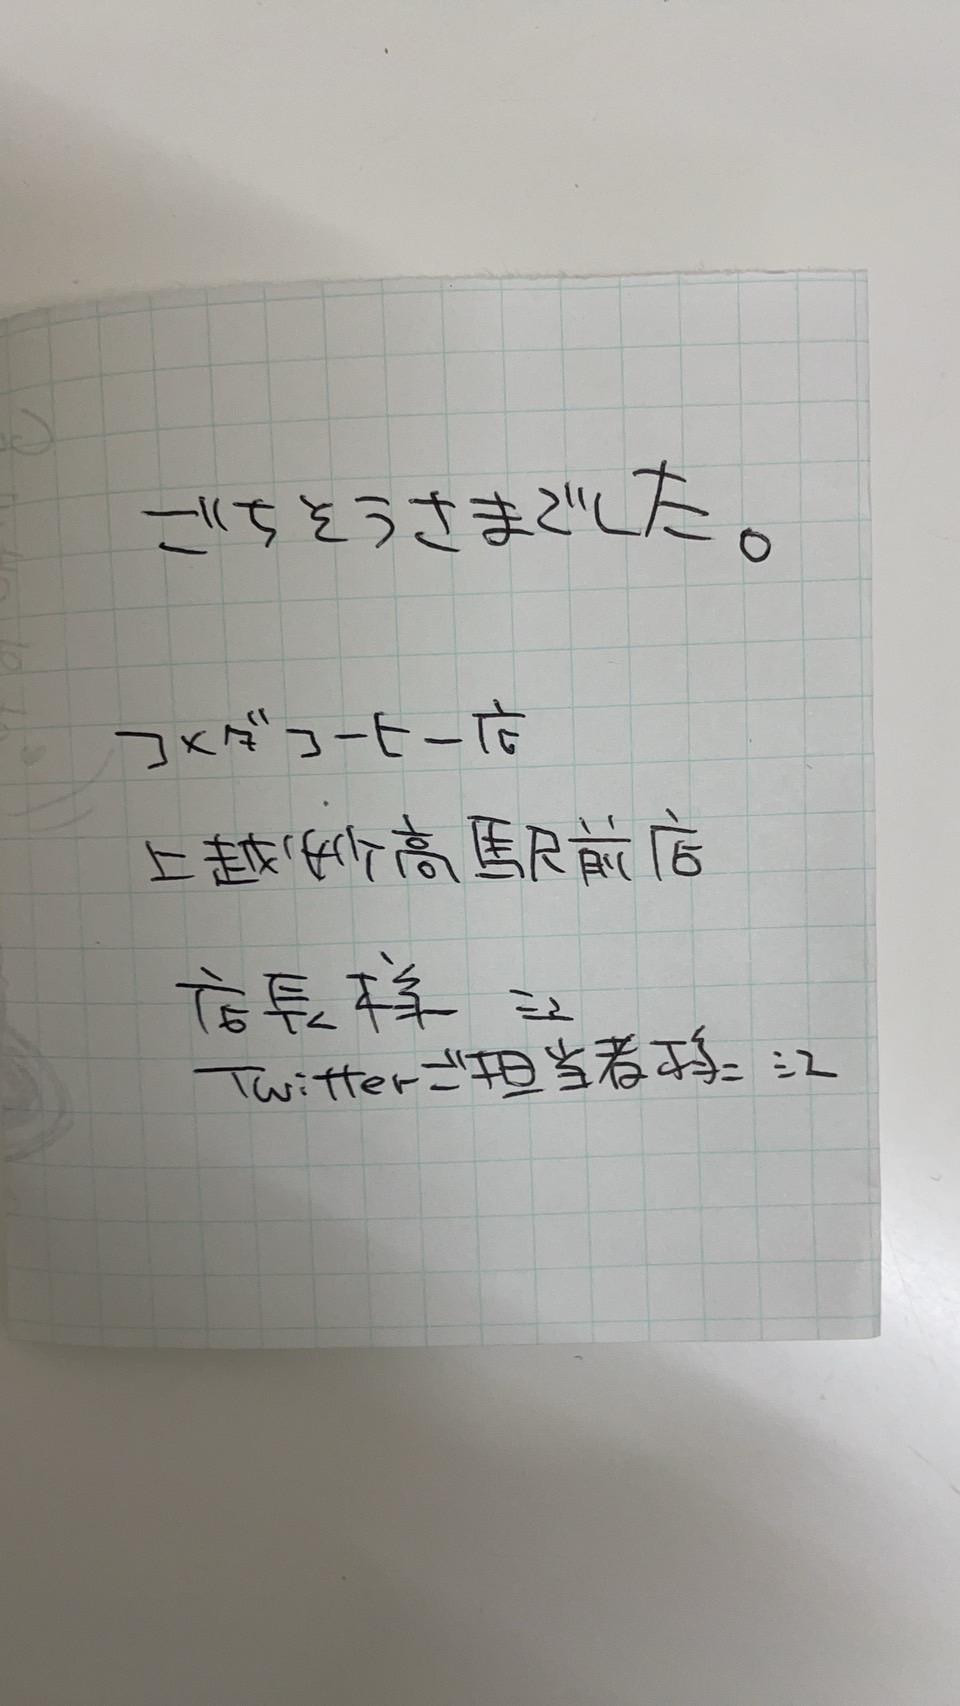 ごちそうさまでした。
コメダコーヒー店
上越妙高駅前店
店長様 ミ2
Twitterご担当者様 ミ2